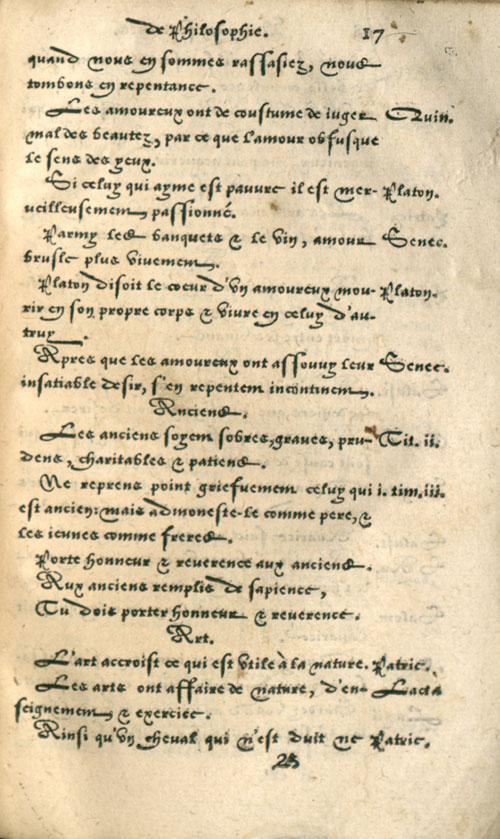 de Philosophie. 17
quand nous en sommes rassasiez, nous
tombons en repentance.
Les amoureux ont de coustume de iuger Quin.
mal des beautez, par ce que l'amour obfusque
le sens des yeux.
Si celuy qui ayme est pauure il est mer- Platon.
ueilleusement passionné.
Parmy les banquets & le vin, amour Senec.
brusle plus viuement.
Platon disoit le coeur d'vn amoureux mou- Platon.
rir en son propre corps & viure en celuy d'au-
truy.
Apres que les amoureux ont assouuy leur Senec.
insatiable desir, s'en repentent incontinent.
Anciens.
Les anciens soyent sobres, graues, pru- Tit. ii.
dens, charitables & patiens.
Ne reprens point griefuement celuy qui i. tim. iii.
est ancien: mais admoneste-le comme pere, &
les ieunes comme freres.
Porte honneur & reuerence aux anciens.
Aux anciens remplis de sapience,
Tu dois porter honneur & reuerence.
Art.
L'art accroist ce qui est vtile à la nature. Patric.
Les arts ont affaire de nature, d'en- Lacta
seignement & exercice.
Ainsi qu'vn cheual qui n'est duit ne Patric.